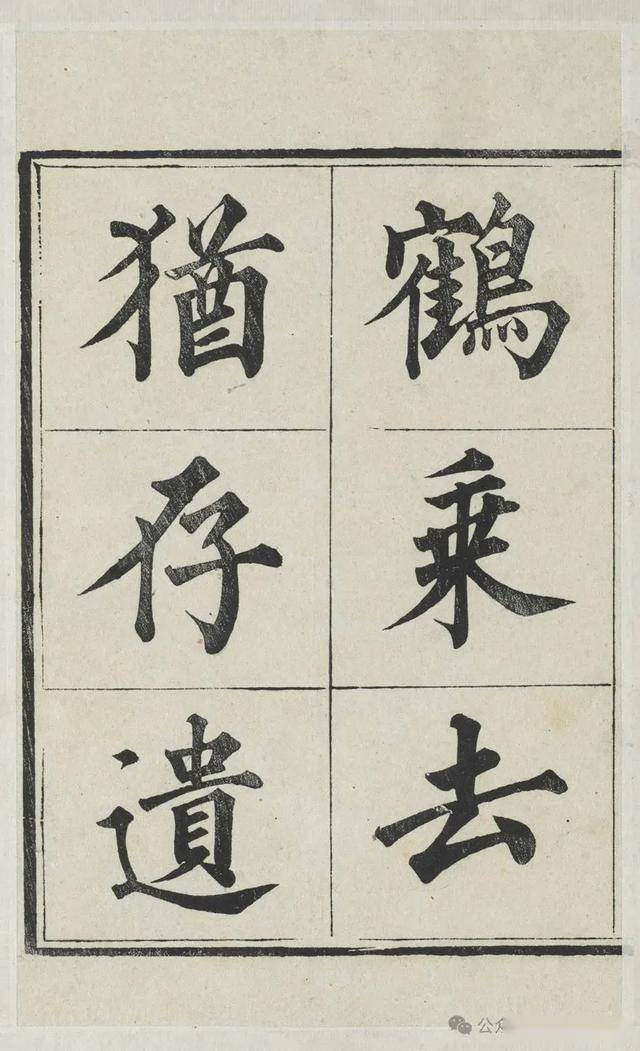 鶴乘去
猶存遺
公众